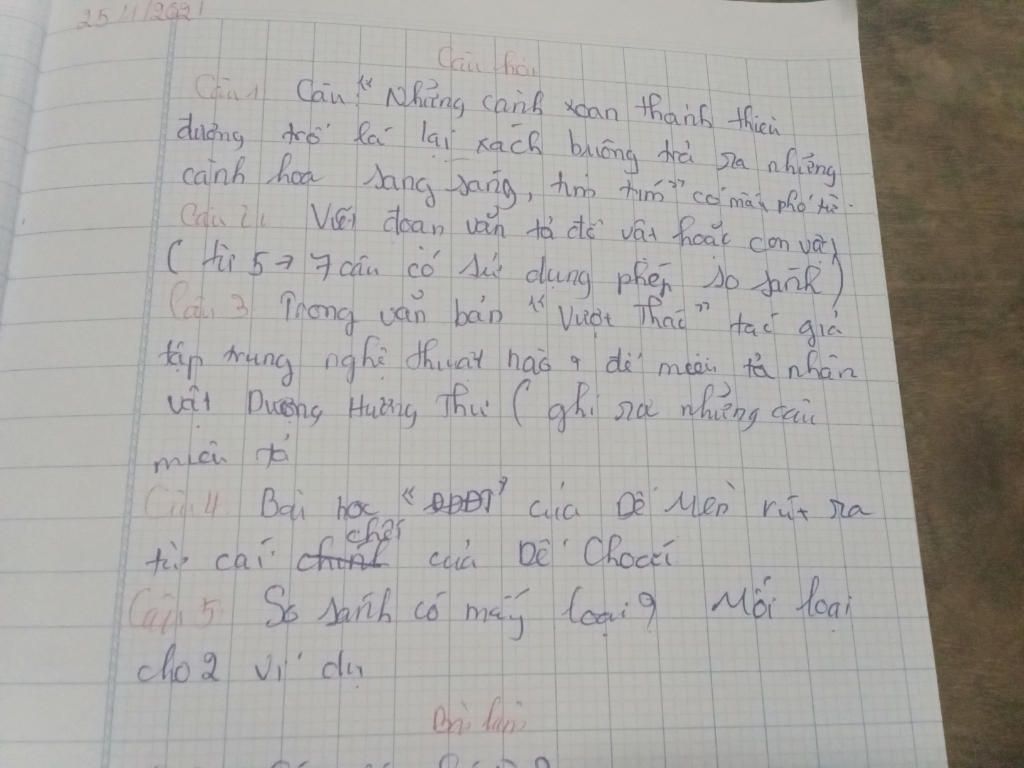 25/11/2021
Câu hỏi
Câu 1 Câu "Những cành xoan thanh thiên
đường trổ lá lại xách buông trả ra những
cành hoa sang sáng, tim tím" có mấy phó từ.
Câu 2: Viết đoạn văn tả đồ vật hoặc con vật
( từ 5 → 7 câu có sử dụng phép so sánh )
Câu 3 Trong văn bản "Vượt Thác" tác giả
tập trung nghệ thuật nào ? để miêu tả nhân
vật Dượng Hương Thư ( ghi ra những câu
miêu tả
Câu 4 Bài học "ĐĐĐT" của Dế Mèn rút ra
từ cái chết của Dế Choắt
Câu 5 So sánh có mấy loại ? Mỗi loại
cho 2 ví dụ
Bài làm